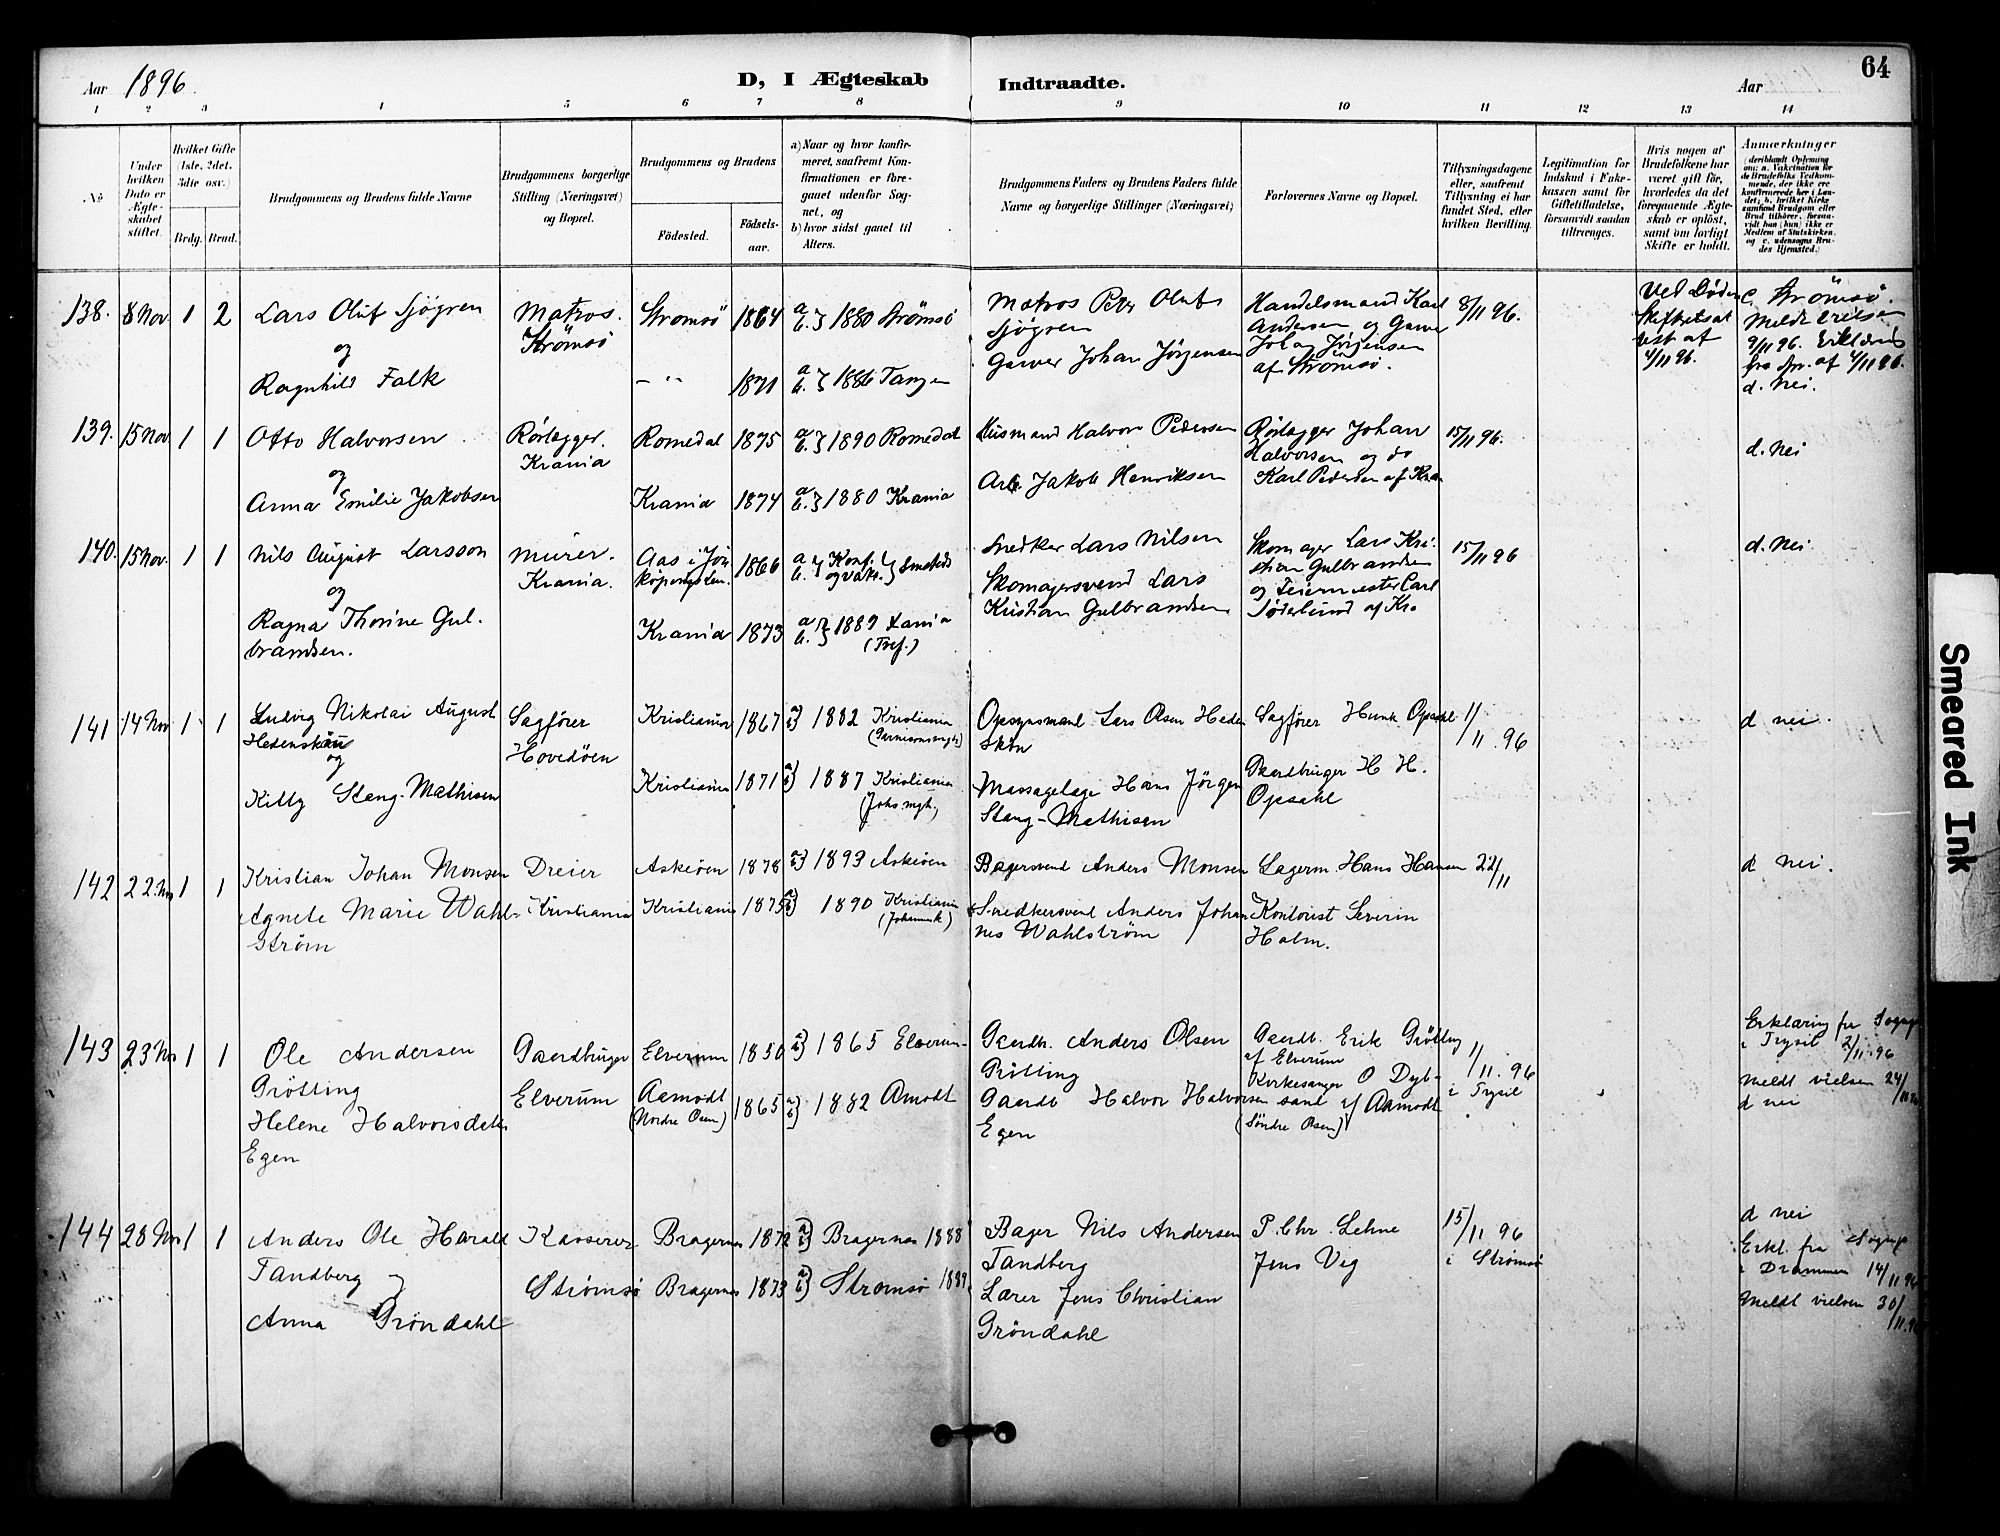 64
Aar 1896.
D, I Ægteskab Indtraadte.
Aar
1 2 3 4 5 6 7 8 9 10 11 12 13 14
No
Under hvilken Dato er Ægteskabet stiftet.
Hvilket Gifte (1ste, 2det, 3die osv.)
Brdg. Brud.
Brudgommens og Brudens fulde Navne
Brudgommens borgerlige Stilling (Næringsvei) og Bopæl.
Brudgommens og Brudens
Fødested.
Fødselsaar.
a) Naar og hvor konfirmeret, saafremt Konfirmationen er foregaaet udenfor Sognet, og
b) hvor sidst gaaet til Alters.
Brudgommens Faders og Brudens Faders fulde Navne og borgerlige Stillinger (Næringsvei)
Forlovernes Navne og Bopæl.
Tillysningsdagene eller, saafremt Tillysning ei har fundet Sted, efter hvilken Bevilling.
Legitimation for Indskud i Enkekassen samt for Giftetilladelse, forsaavidt saadan tiltrænges.
Hvis nogen af Brudefolkene har været gift før, hvorledes da det foregaaende Ægteskab er opløst, samt om lovligt Skifte er holdt.
Anmærkninger
(deriblandt Oplysning om: a. Vakcination for de Brudefolks Vedkommende, der ikke ere konfirmerede her i Landet; b. hvilket Kirkesamfund Brudgom eller Brud tilhører, forsaavidt han (hun) ikke er Medlem af Statskirken, og c. udensogns Brudes Hjemsted.)
138. 8 Nov 1 2 Lars Oluf Sjögren
og
Ragnhild Falk
Matros.
Strömsö
Stromsö 1864 a. b. } 1880 Strömsö
— „ 1871 a. b. } 1886 Tangen
Matros Peter Olufs
Sjögren
Garver Johan Jörgensen
Handelsmand Karl
Andersen og Garver
Johan Jörgensen
af Strömsö.
8/11 96.
Ved Døden
Skifteat
test af
4/11 96.
c. Strömsö.
Meldt vielsen
9/11 96. Erklæring
fra Spr. af 4/11 96.
d. Nei.
139. 15 Nov 1 1 Otto Halvorsen
og
Anna Emilie Jakobsen
Rørlægger.
Krania
Romedal 1875 a. b. } 1890 Romedal
Krania 1874 a. b. } 1880 Krania
Husmand Halvor Pedersen
Arb. Jakob Henriksen
Rørlægger Johan
Halvorsen og do
Karl Pedersen af Kra
15/11 96.
d. Nei
140. 15 Nov. 1 1 Nils August Larsson
og
Ragna Thorine Gul-
brandsen.
Murer.
Krania.
Aas i Jön
köpingslen. 1866 a. b. } Konf. og vakc. } Smstds
Krania 1873 a. b. } 1889 Krania
(Tref.)
Snedker Lars Nilsen
Skomagersvend Lars
Kristian Gulbrandsen
Skomager Lars Kri-
stian Gulbrandsen
og Feiermester Carl
Söderlund af Kra
15/11 96
d. Nei.
141 14 Nov 1 1 Ludvig Nikolai August
Hedenskou
og
Kitty Stang-Mathisen
Sagfører
Hovedöen
Kristiania 1867 a) b) 1882 Kristiania
(Garnisonsmgh)
Kristiania 1871 a) b) 1887 Kristiania
(Johs.mgh.)
Opsynsmand Lars Olsen Heden
skou
Massagelæge Hans Jörgen
Stang-Mathisen
Sagfører Hans Opsahl
Gaardbruger H H.
Opsahl
1/11. 96
d nei.
142 22 Nov 1 1 Kristian Johan Monsen
Agnete Marie Wahl-
Ström
Dreier
Kristiania
Askeöen 1878 a) b) 1893 Askeöen
Kristiania 1875 a) b) 1890 Kristiania
(Johannesk)
Bagersvend Anders Monsen
Snedkersvend Anders Johan
nes Wahlström
Lagerm. Hans Hansen
Kontorist Severin
Holm.
22/11
d nei.
143 23 Nov 1 1 Ole Andersen
Grötting
Helene Halvorsdatter
Egen
Gaardbruger
Elverum
Elverum 1850 a) b) 1865 Elverum
Aamodt
(Nordre Osen) 1865 a) b) 1882 Amodt
Gaardb. Anders Olsen
Grötting
Gaardb Halvor Halvorsen
Egen
Gaardb. Erik Grötting
af Elverum
Kirkesanger O Dyb-
samt af Aamodt
(Söndre Osen)
1/11. 96
i Trysil
Erklæring fra Sognep.
i Trysil 2/11.96
Meldt vielsen 24/11 96
d nei
144 28 Nov 1 1 Anders Ole Harald
Tandberg og
Anna Gröndahl
Kasserer
Strömsö
Bragernes 1872 a) b) Bragernes 1888
Bragernes 1873 a) b) Stromsö 1889
Bager Nils Andersen
Tandberg
Lærer Jens Christian
Gröndahl
P. Chr. Lehne
Jens Veg
15/11 96
i Strömsö
d nei
Erkl. fra Sognep
i Drammen 14/11 96
Meldt vielsen 30/11.96
Smeared Ink